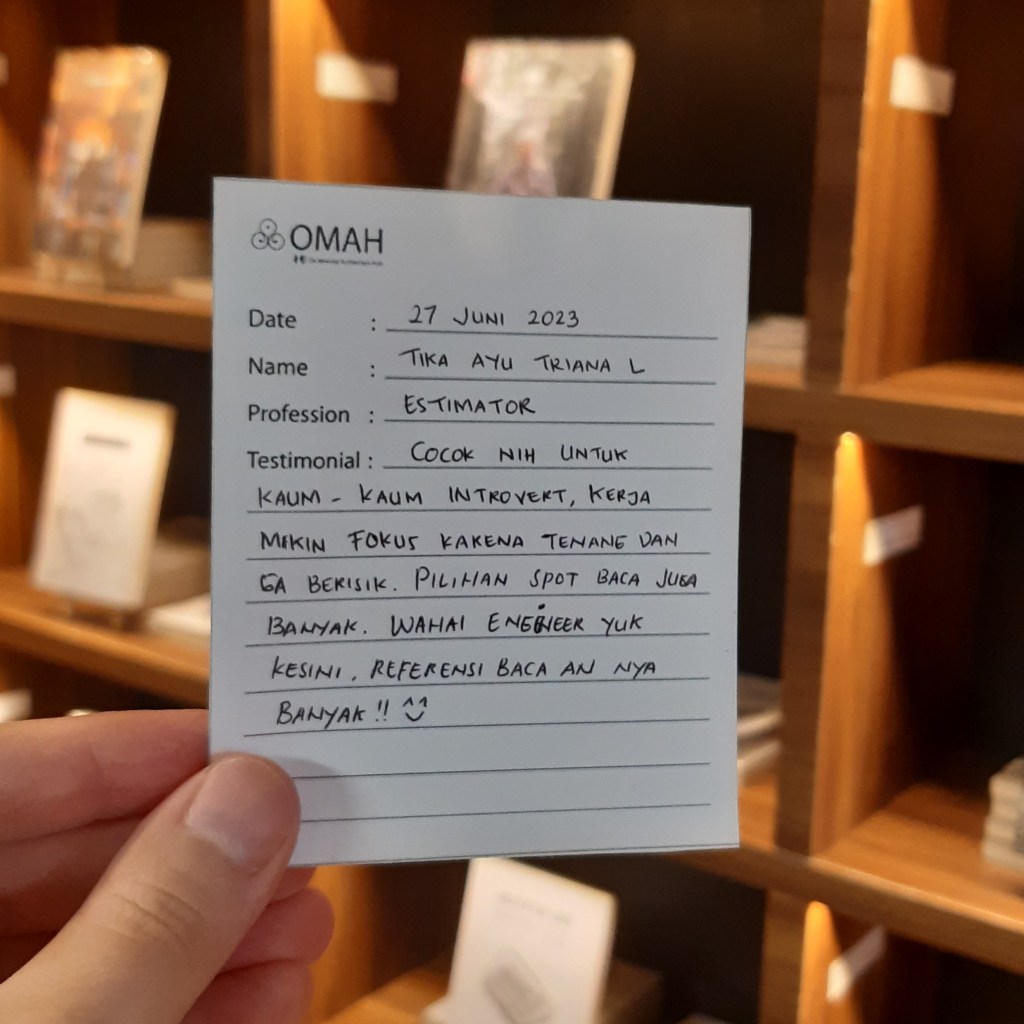 OMAH
Date : 27 JUNI 2023
Name : TIKA AYU TRIANA L
Profession : ESTIMATOR
Testimonial : COCOK NIH UNTUK
KAUM - KAUM INTROVERT, KERJA
MAKIN FOKUS KARENA TENANG DAN
GA BERISIK. PILIHAN SPOT BACA JUGA
BANYAK. WAHAI ENGINEER YUK
KESINI. REFERENSI BACA AN NYA
BANYAK !! ^^